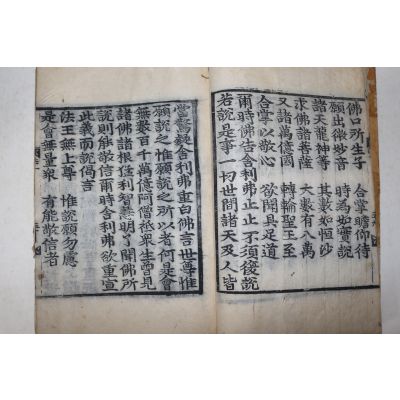 佛口所生子 合掌瞻仰待
願出微妙音 時為如實說
諸天龍神等 其數如恒沙
求佛諸菩薩 大數有八萬
又諸萬億國 轉輪聖王至
合掌以敬心 欲聞具足道
爾時佛告舍利弗止止不須復說
若說是事一切世間諸天及人皆
當驚疑舍利弗重白佛言世尊惟
願說之惟願說之所以者何是會
無數百千萬億阿僧祇衆生曾見
諸佛諸根猛利智慧明了聞佛所
說則能敬信爾時舍利弗欲重宣
此義而說偈言
法王無上尊 惟說願勿慮
是會無量衆 有能敬信者